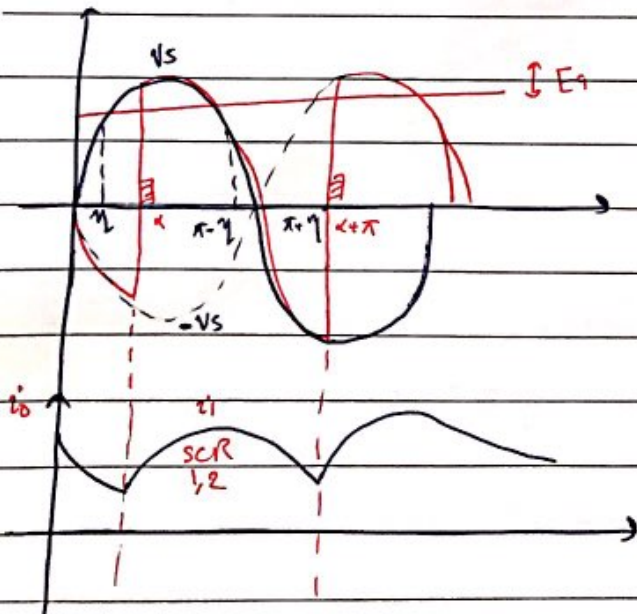 Vs
Ea
η α π-η π+η α+π
-Vs
io i1
SCR
1,2